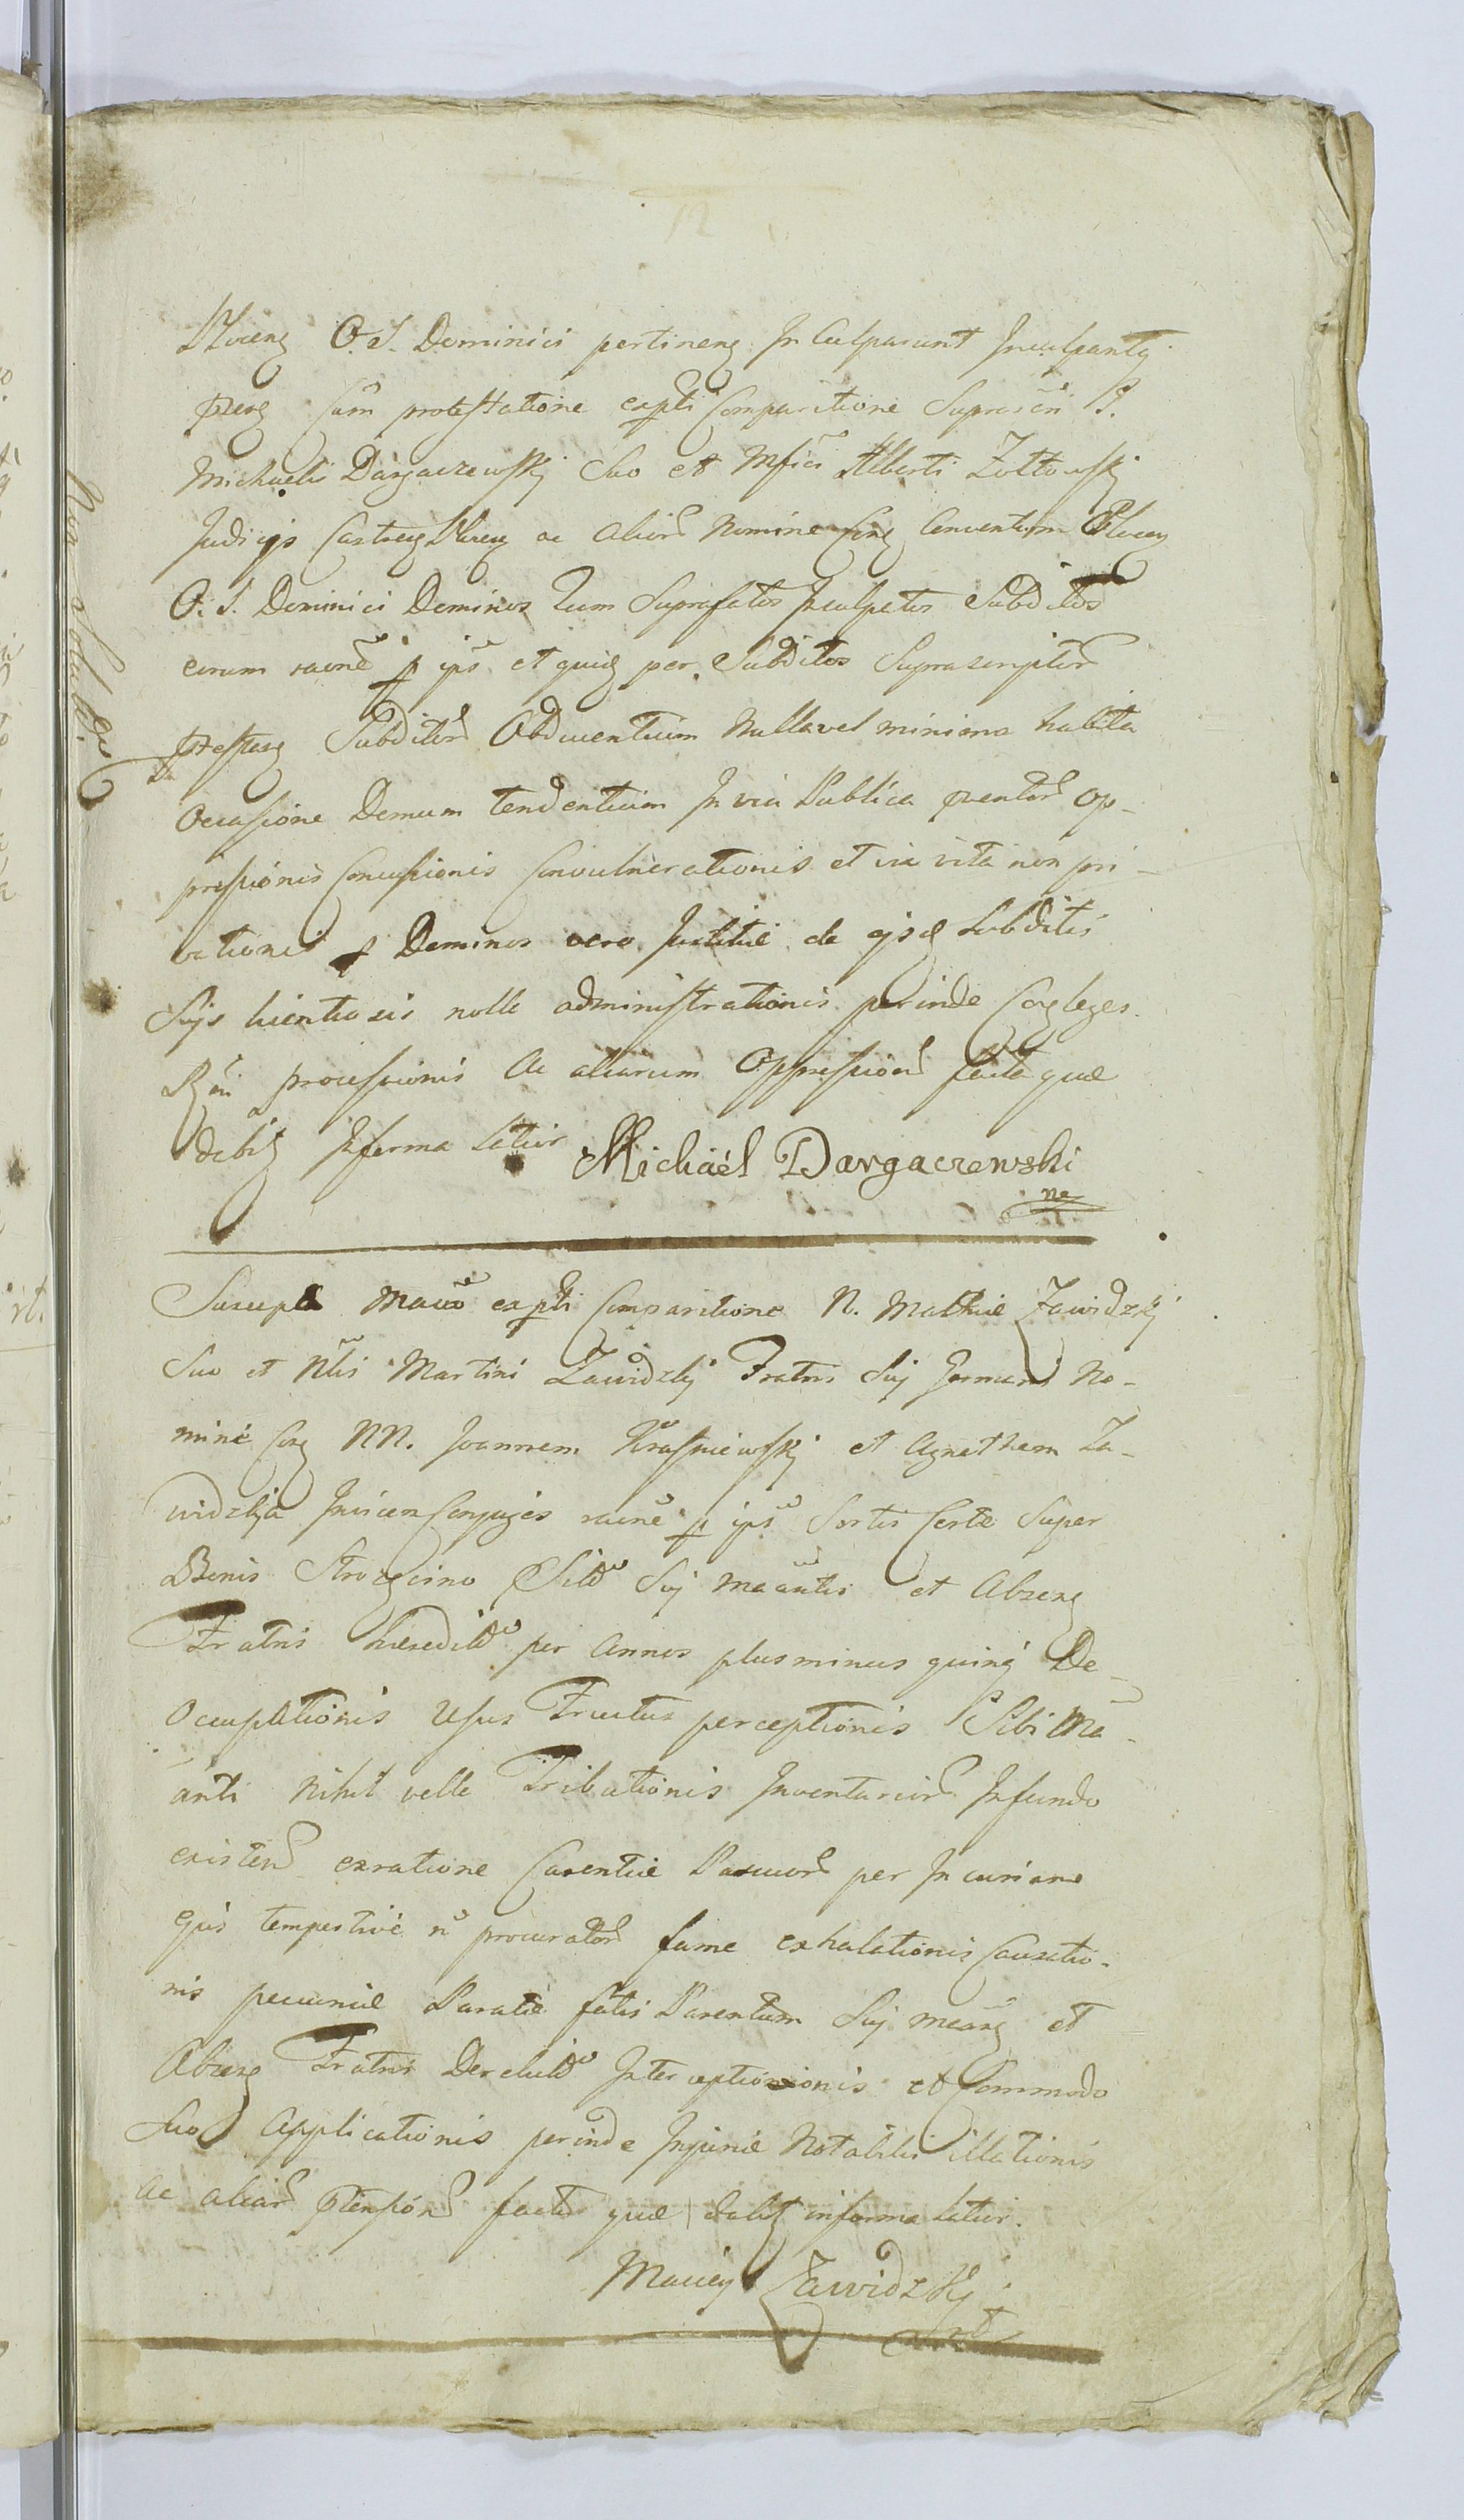 Plocens O. S. Dominici pertinens In Culparunt Inculpantq
prens Cum protestatione expti Comparitione Suprascri P.
Michaelis Dargaczewskj Suo et Mfici Alberti Zołtowskj
Judicijs Castrens Plocens ac aliorū Nomine Cong Conventum Plocen
O. S. Dominici Dominos Tum Suprafatos Inculpatos Subditos
eorum raōne p ips et quidg per Subditos Suprascriptorū
Subditorū Obducentium Nulla vel minima habita
Occasione Domum tendentium In via Publica Op-
pressionis Concussionis Convulnerationis et vix vita non pri-
vationis Dominos vero Justitiæ de ejsd Subditis
Sujs licentiosis nolle administrationis perinde Cong leges
Rgni processionis Ac aliarum Oppressionū facta quæ
debite In forma latior Michaël Dargaczewski
Suscepta Mauo expti Comparitione N. Mathiæ Zawidzkj
Suo et Nlis Martini Zawidzkj Fratris Suj Germani No-
mine Cong NN. Joannem Krasniewskj et Agnetham Za-
widzkja Invicem Conjuges raōne p ips Sortis Certæ Super
Bonis Strozęcino Sitæ Suj Maāntis et Absens
Fratris hæredit per Annos plus minus quinq De-
Occupationis Usus Fructus perceptionis Sibi Ma-
anti Nihil velle Tribationis Inventariorū In fundo
existen ex ratione Carentiæ Pascuorū per In curiam
Ejus tempestive n procuratorū fame exhalationis Causatio-
nis pecuniæ Paratæ fatis Parentum Suj meaāns et
Absens Fratris Derelict Interceptionionis et Commodo
Suo Applicationis perinde Injuriæ Notabilis illationis
Ac aliarū facta quæ debite in forma latior.
Maciey Zawidzkj